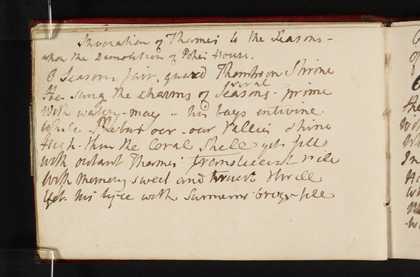 Invocation of Thames to the Seasons -
upon the Demolition of Popes House.
O Seasons fair, guard Thomsons Shrine
Who sung the charms of Seasons prime
rural
With wat'ry may - his bays entwine
While Phebus o'er our Vallies shine
Keep thou the Coral Shell yet fill
with distant Thames translucent
With memory sweet and thrill
Yet his lyre with Summers fill